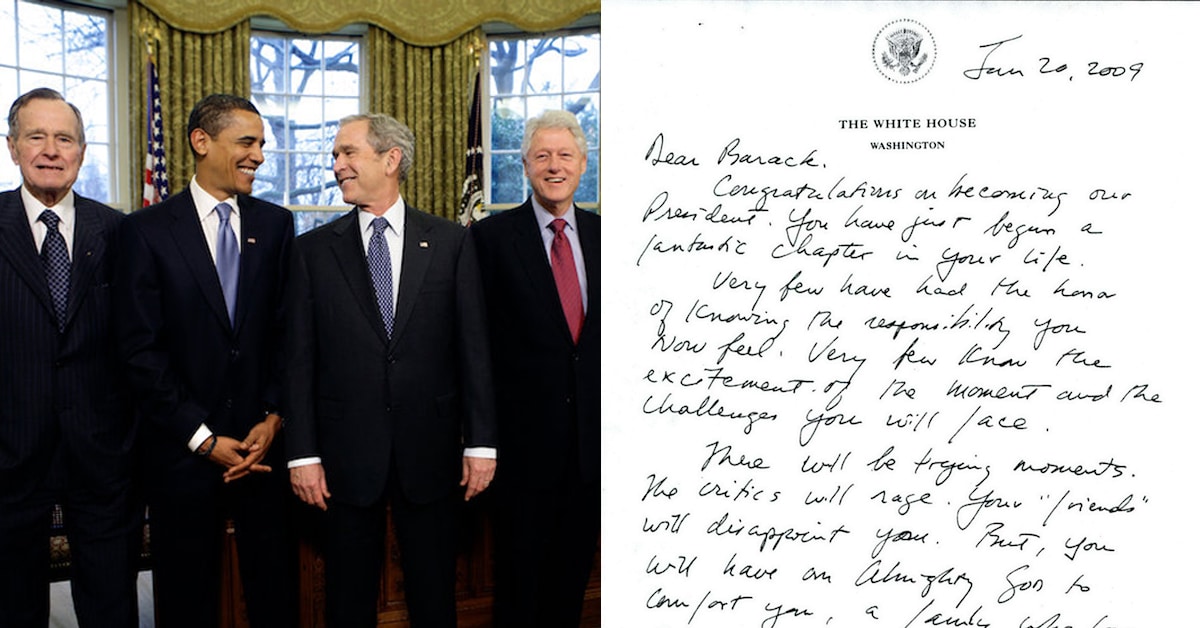 Jan 20, 2009
THE WHITE HOUSE
WASHINGTON
Dear Barack,
Congratulations on becoming our
President. You have just begun a
fantastic chapter in your life.
Very few have had the honor
of knowing the responsibility you
now feel. Very few know the
excitement of the moment and the
challenges you will face.
There will be trying moments.
The critics will rage. Your "friends"
will disappoint you. But, you
will have an Almighty God to
comfort you, a family who